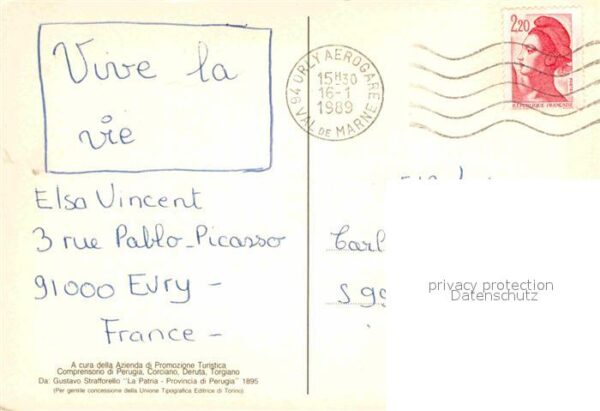 Vive la
vie
Elsa Vincent
3 rue Pablo-Picasso
91000 Evry -
France -
A cura della Azienda di Promozione Turistica
Comprensorio di Perugia, Corciano, Deruta, Torgiano
Da: Gustavo Strafforello "La Patria - Provincia di Perugia" 1895
(Per gentile concessione della Unione Tipografica Editrice di Torino)
94 ORLY AEROGARE
15H30
16-1
1989
VAL DE MARNE
2,20
REPUBLIQUE FRANÇAISE
Carl
S 99
privacy protection
Datenschutz